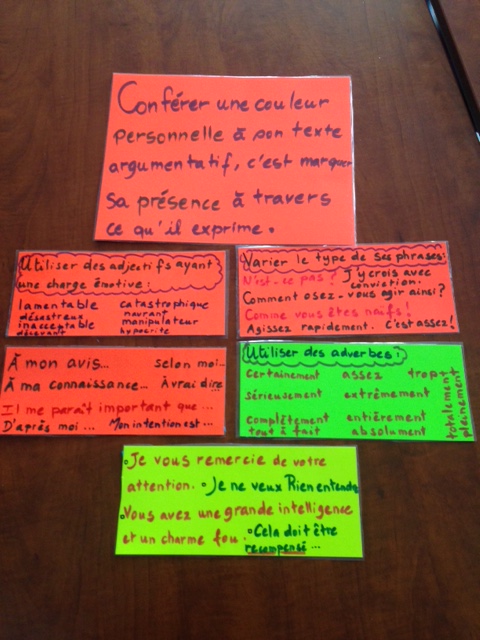 Conférer une couleur
personnelle à son texte
argumentatif, c'est marquer
sa présence à travers
ce qu'il exprime.
Utiliser des adjectifs ayant
une charge émotive:
lamentable catastrophique
désastreux navrant
inacceptable manipulateur
décevant hypocrite
Varier le type de ses phrases:
N'est-ce pas? J'y crois avec
conviction.
Comment osez-vous agir ainsi?
Comme vous êtes naïfs!
Agissez rapidement. C'est assez!
À mon avis... selon moi...
À ma connaissance... À vrai dire...
Il me paraît important que...
D'après moi... Mon intention est...
Utiliser des adverbes:
certainement assez trop
sérieusement extrêmement
complètement entièrement
tout à fait absolument
totalement
pleinement
Je vous remercie de votre
attention. Je ne veux Rien entendre
Vous avez une grande intelligence
et un charme fou. Cela doit être
recompensé...